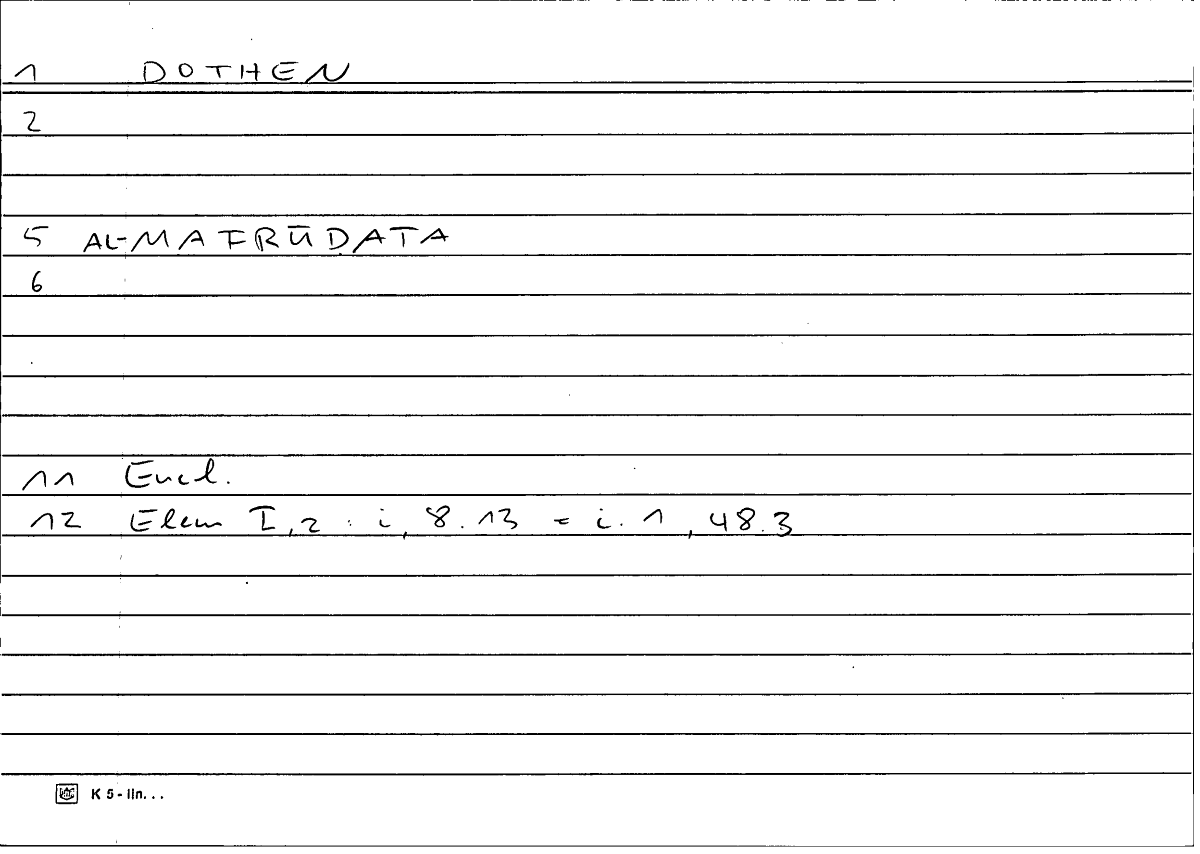 1 DOTHEN
2
5 AL-MAFRŪDATA
6
11 Eucl.
12 Elem I,2 : i, 8.13 = i. 1, 48.3
K 5 - lin. . .